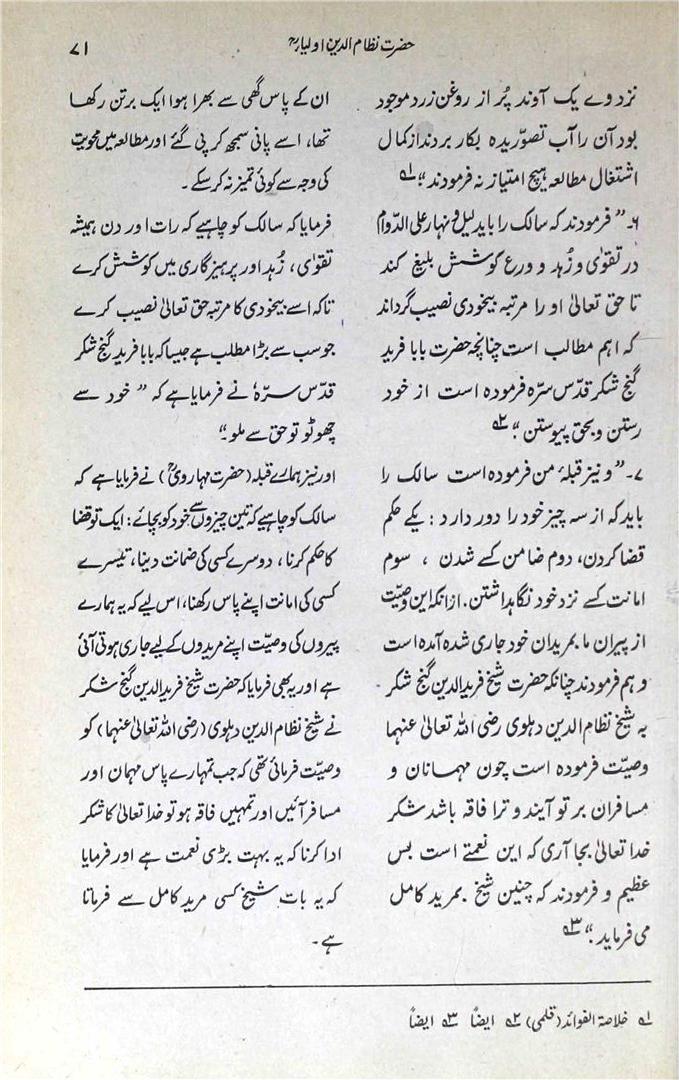 حضرت نظام الدین اولیاءؒ
۷۱
نزد وے یک آوند پُر از روغن زرد موجود
بود آن را آب تصوّریده بکار بردند از کمال
اشتغال مطالعه هیچ امتیاز نه فرمودند"؛ ؎۱
۶۔" فرمودند که سالک را باید لیل و نهار علی الدّوام
در تقوٰی و زُهد و ورع کوشش بلیغ کند
تا حق تعالیٰ او را مرتبه بیخودی نصیب گرداند
که اهم مطالب است چنانچه حضرت بابا فرید
گنج شکر قدّس سرّه فرموده است از خود
رستن و بحق پیوستن"؛ ؎۲
۷۔" و نیز قبلۂ من فرموده است سالک را
باید که از سه چیز خود را دور دارد : یکے حکم
قضا کردن، دوم ضامن کسے شدن ، سوم
امانت کسے نزد خود نگاهداشتن. ازانکه این وصیّت
از پیران ما بمریدان خود جاری شده آمده است
و هم فرمودند چنانکه حضرت شیخ فرید الدین گنج شکر
به شیخ نظام الدین دهلوی رضی الله تعالیٰ عنهما
وصیّت فرموده است چون مهمانان و
مسافران بر تو آیند و ترا فاقه باشد شکر
خدا تعالیٰ بجا آری که این نعمتے است بس
عظیم و فرمودند که چنین شیخ بمرید کامل
می فرماید"؛ ؎۳
ان کے پاس گھی سے بھرا ہوا ایک برتن رکھا
تھا، اسے پانی سمجھ کر پی گئے اور مطالعہ میں محویت
کی وجہ سے کوئی تمیز نہ کر سکے ۔
فرمایا کہ سالک کو چاہیے کہ رات اور دن ہمیشہ
تقوٰی ، زُہد اور پرہیزگاری میں کوشش کرے
تاکہ اسے بیخودی کا مرتبہ حق تعالیٰ نصیب کرے
جو سب سے بڑا مطلب ہے جیسا کہ بابا فرید گنج شکر
قدّس سرّہٗ نے فرمایا ہے کہ " خود سے
چھوٹو تو حق سے ملو۔"
اور نیز ہمارے قبلہ (حضرت مہارویؒ) نے فرمایا ہے کہ
سالک کو چاہیے کہ تین چیزوں سے خود کو بچائے: ایک تو قضا
کا حکم کرنا ، دوسرے کسی کی ضمانت دینا، تیسرے
کسی کی امانت اپنے پاس رکھنا، اس لیے کہ یہ ہمارے
پیروں کی وصیّت اپنے مریدوں کے لیے جاری ہوتی آئی
ہے اور یہ بھی فرمایا کہ حضرت شیخ فرید الدین گنج شکر
نے شیخ نظام الدین دہلوی (رضی اللہ تعالیٰ عنہما) کو
وصیّت فرمائی تھی کہ جب تمہارے پاس مہمان اور
مسافر آئیں اور تمہیں فاقہ ہو تو خدا تعالیٰ کا شکر
ادا کرنا کہ یہ بہت بڑی نعمت ہے اور فرمایا
کہ یہ بات شیخ کسی مرید کامل سے فرماتا
ہے ۔
؎۱ خلاصۃ الفوائد (قلمی) ؎۲ ایضاً ؎۳ ایضاً